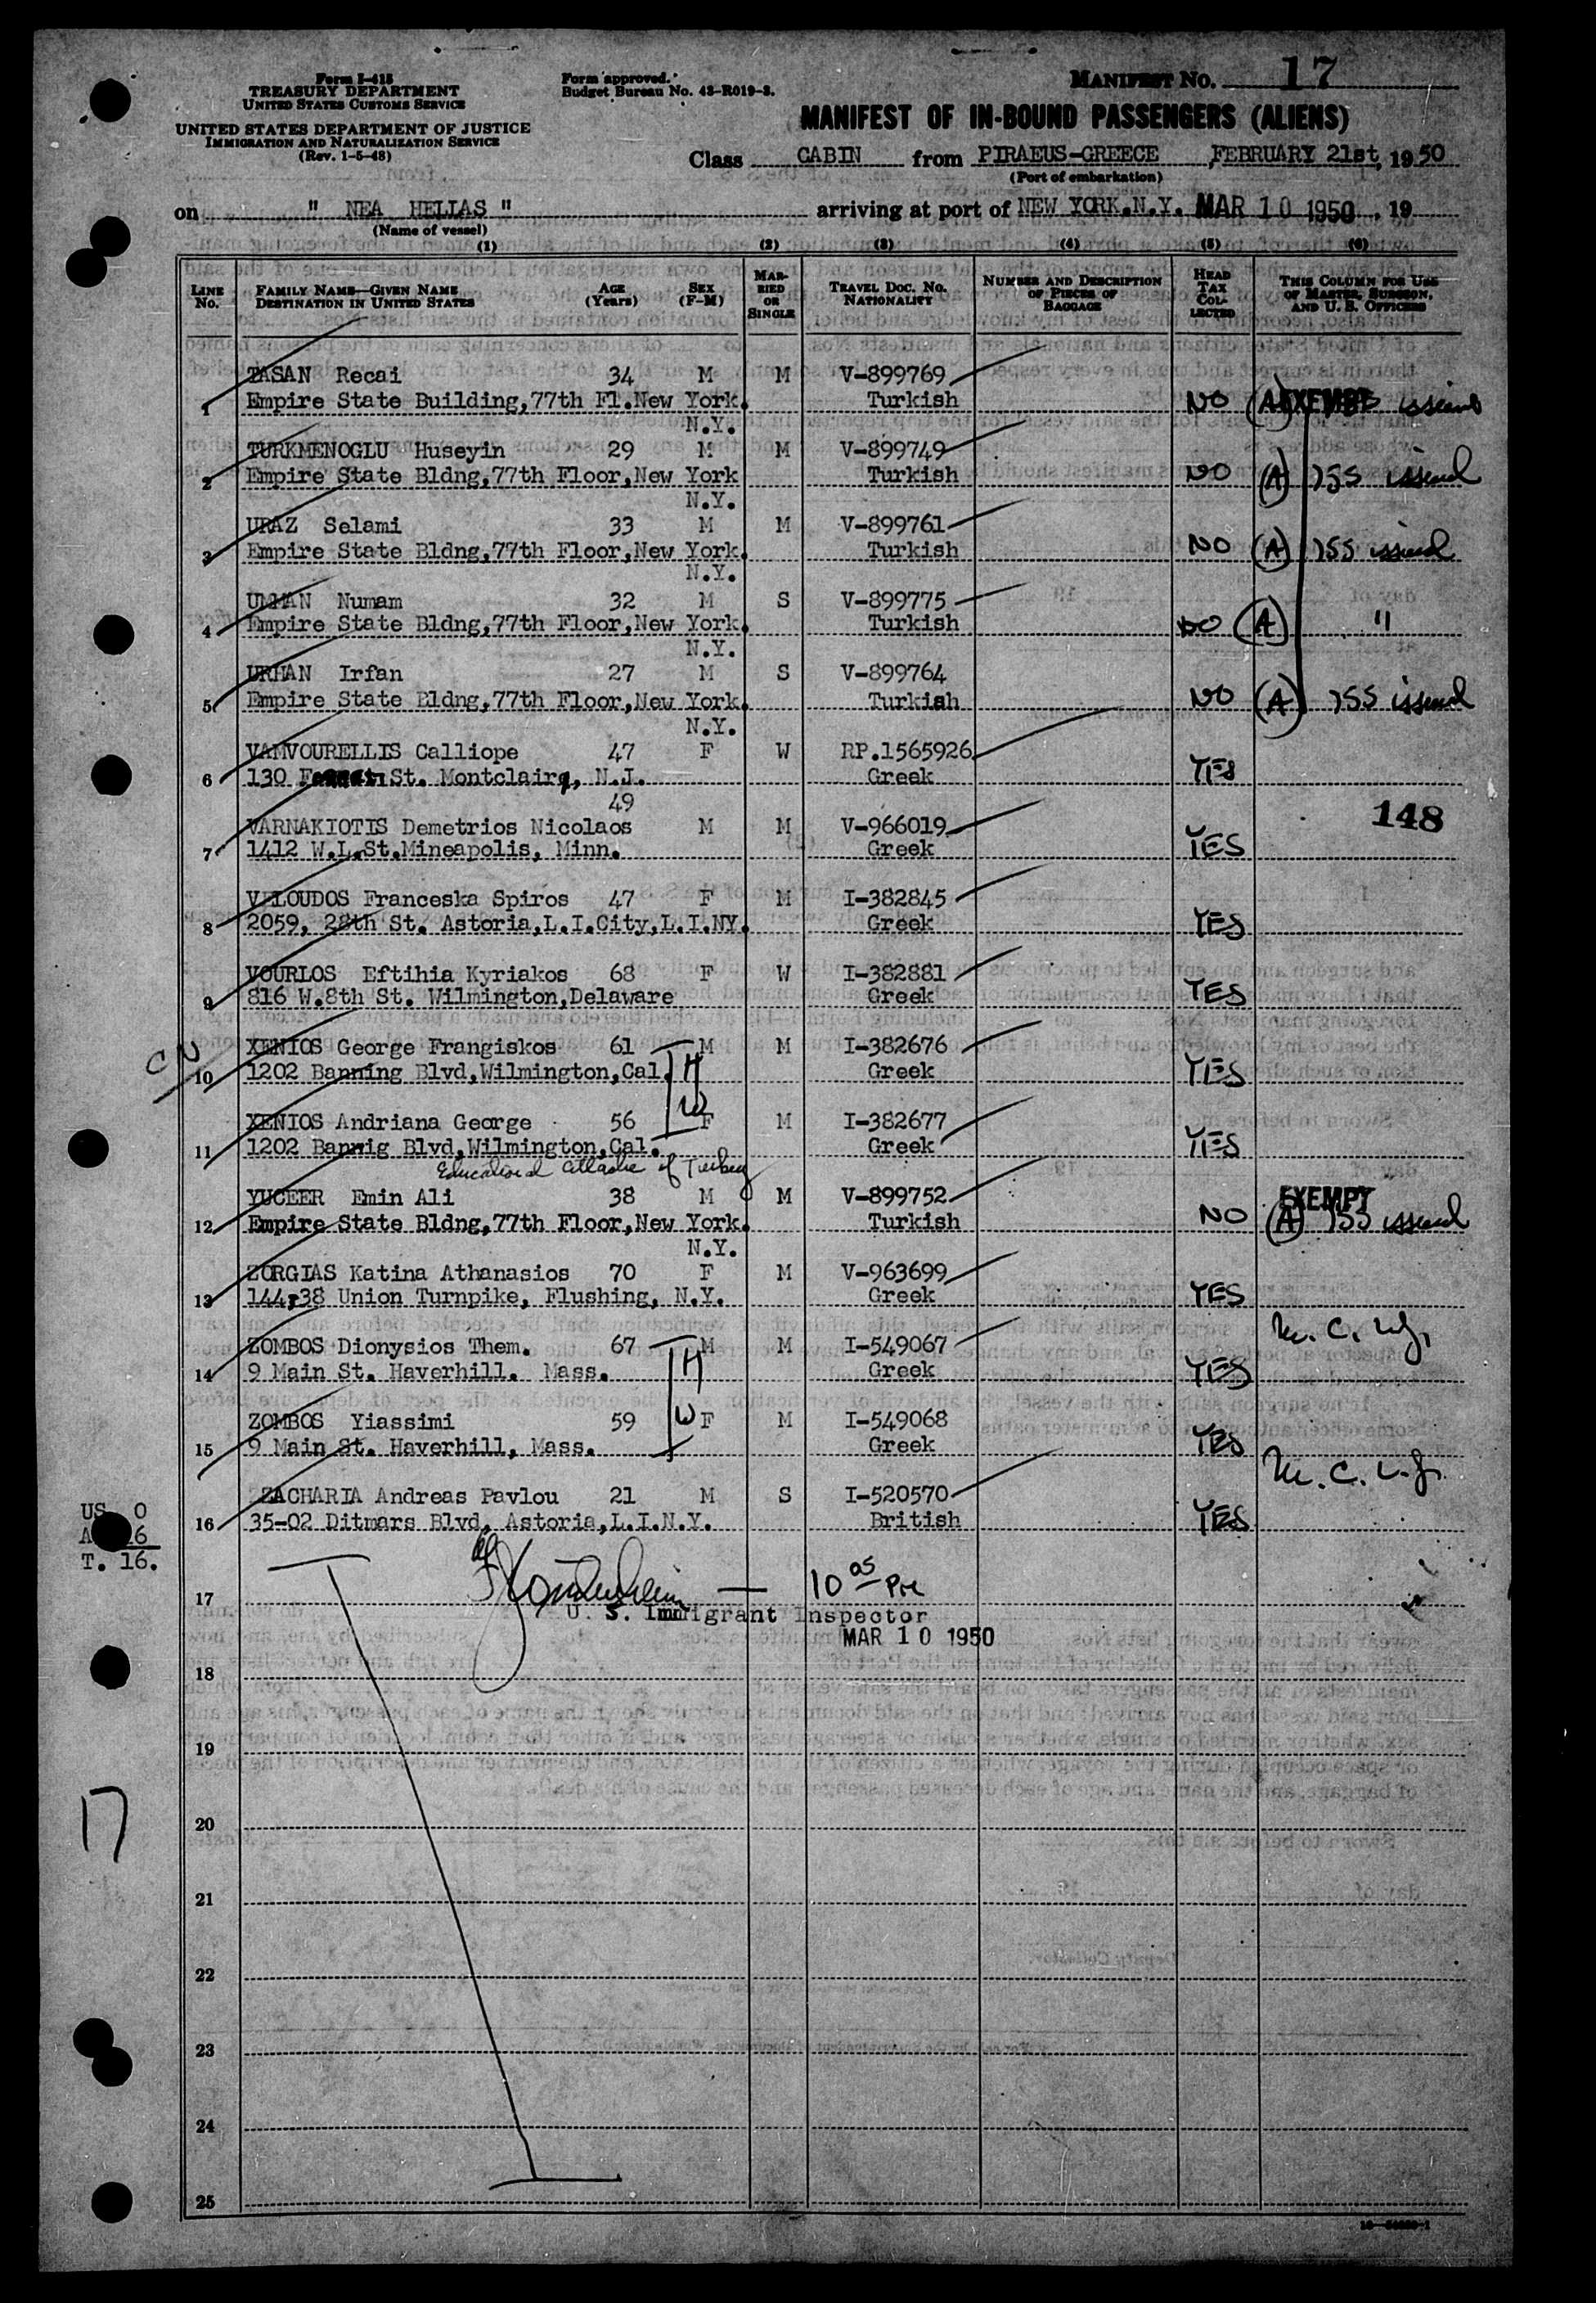 Form I-418
TREASURY DEPARTMENT
UNITED STATES CUSTOMS SERVICE
UNITED STATES DEPARTMENT OF JUSTICE
IMMIGRATION AND NATURALIZATION SERVICE
(Rev. 1-5-48)
Form approved.
Budget Bureau No. 43-R019-3.
MANIFEST No. 17
MANIFEST OF IN-BOUND PASSENGERS (ALIENS)
Class CABIN from PIRAEUS-GREECE, FEBRUARY 21st, 1950
(Port of embarkation)
on " NEA HELLAS " arriving at port of NEW YORK.N.Y. MAR 10 1950, 19
(Name of vessel)
(1) (2) (3) (4) (5) (6)
LINE No. FAMILY NAME—GIVEN NAME DESTINATION IN UNITED STATES AGE (Years) SEX (F-M) MARRIED OR SINGLE TRAVEL DOC. NO. NATIONALITY NUMBER AND DESCRIPTION OF PIECES OF BAGGAGE HEAD TAX COLLECTED THIS COLUMN FOR USE OF MASTER, SURGEON, AND U. S. OFFICERS
TASAN Recai 34 M M V-899769
1 Empire State Building,77th Fl.New York. Turkish NO (A) EXEMPT issued
N.Y.
TURKMENOGLU Huseyin 29 M M V-899749
2 Empire State Bldng,77th Floor,New York Turkish NO (A) 155 issued
N.Y.
URAZ Selami 33 M M V-899761
3 Empire State Bldng,77th Floor,New York. Turkish NO (A) 155 issued
N.Y.
UMMAN Numam 32 M S V-899775
4 Empire State Bldng,77th Floor,New York. Turkish NO (A) "
N.Y.
URHAN Irfan 27 M S V-899764
5 Empire State Bldng,77th Floor,New York. Turkish NO (A) 155 issued
N.Y.
VAMVOURELLIS Calliope 47 F W RP.1565926
6 130 St. Montclair, N.J. Greek YES
49
VARNAKIOTIS Demetrios Nicolaos M M V-966019
148
7 1412 W.L.St.Mineapolis, Minn. Greek YES
VELOUDOS Franceska Spiros 47 F M I-382845
8 2059, 28th St. Astoria,L.I.City,L.I.NY. Greek YES
VOURLOS Eftihia Kyriakos 68 F W I-382881
9 816 W.8th St. Wilmington,Delaware Greek YES
XENIOS George Frangiskos 61 M M I-382676
10 1202 Banning Blvd,Wilmington,Cal. H Greek YES
W
XENIOS Andriana George 56 F M I-382677
11 1202 Bannig Blvd,Wilmington,Cal. Greek YES
Educational Attache of Turkey
YUCEER Emin Ali 38 M M V-899752 EXEMPT
12 Empire State Bldng,77th Floor,New York. Turkish NO (A) 155 issued
N.Y.
ZORGIAS Katina Athanasios 70 F M V-963699
13 144-38 Union Turnpike, Flushing, N.Y. Greek YES
ZOMBOS Dionysios Them. 67 M M I-549067
14 9 Main St. Haverhill. Mass. H Greek YES
ZOMBOS Yiassimi 59 W F M I-549068
15 9 Main St. Haverhill, Mass. Greek YES
ZACHARIA Andreas Pavlou 21 M S I-520570
16 35-02 Ditmars Blvd, Astoria,L.I.N.Y. British YES
US 0
A 16
T. 16.
17
10 05 PM
U. S. Immigrant Inspector
MAR 10 1950
18
19
17
20
21
22
23
24
25